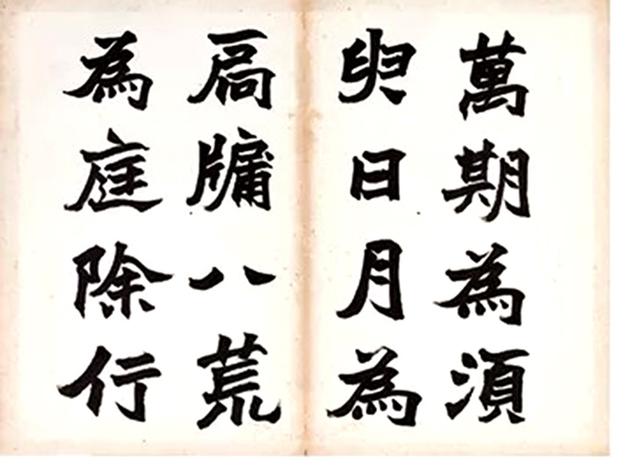 萬期為湏
臾日月為
扃牗八荒
為庭除行